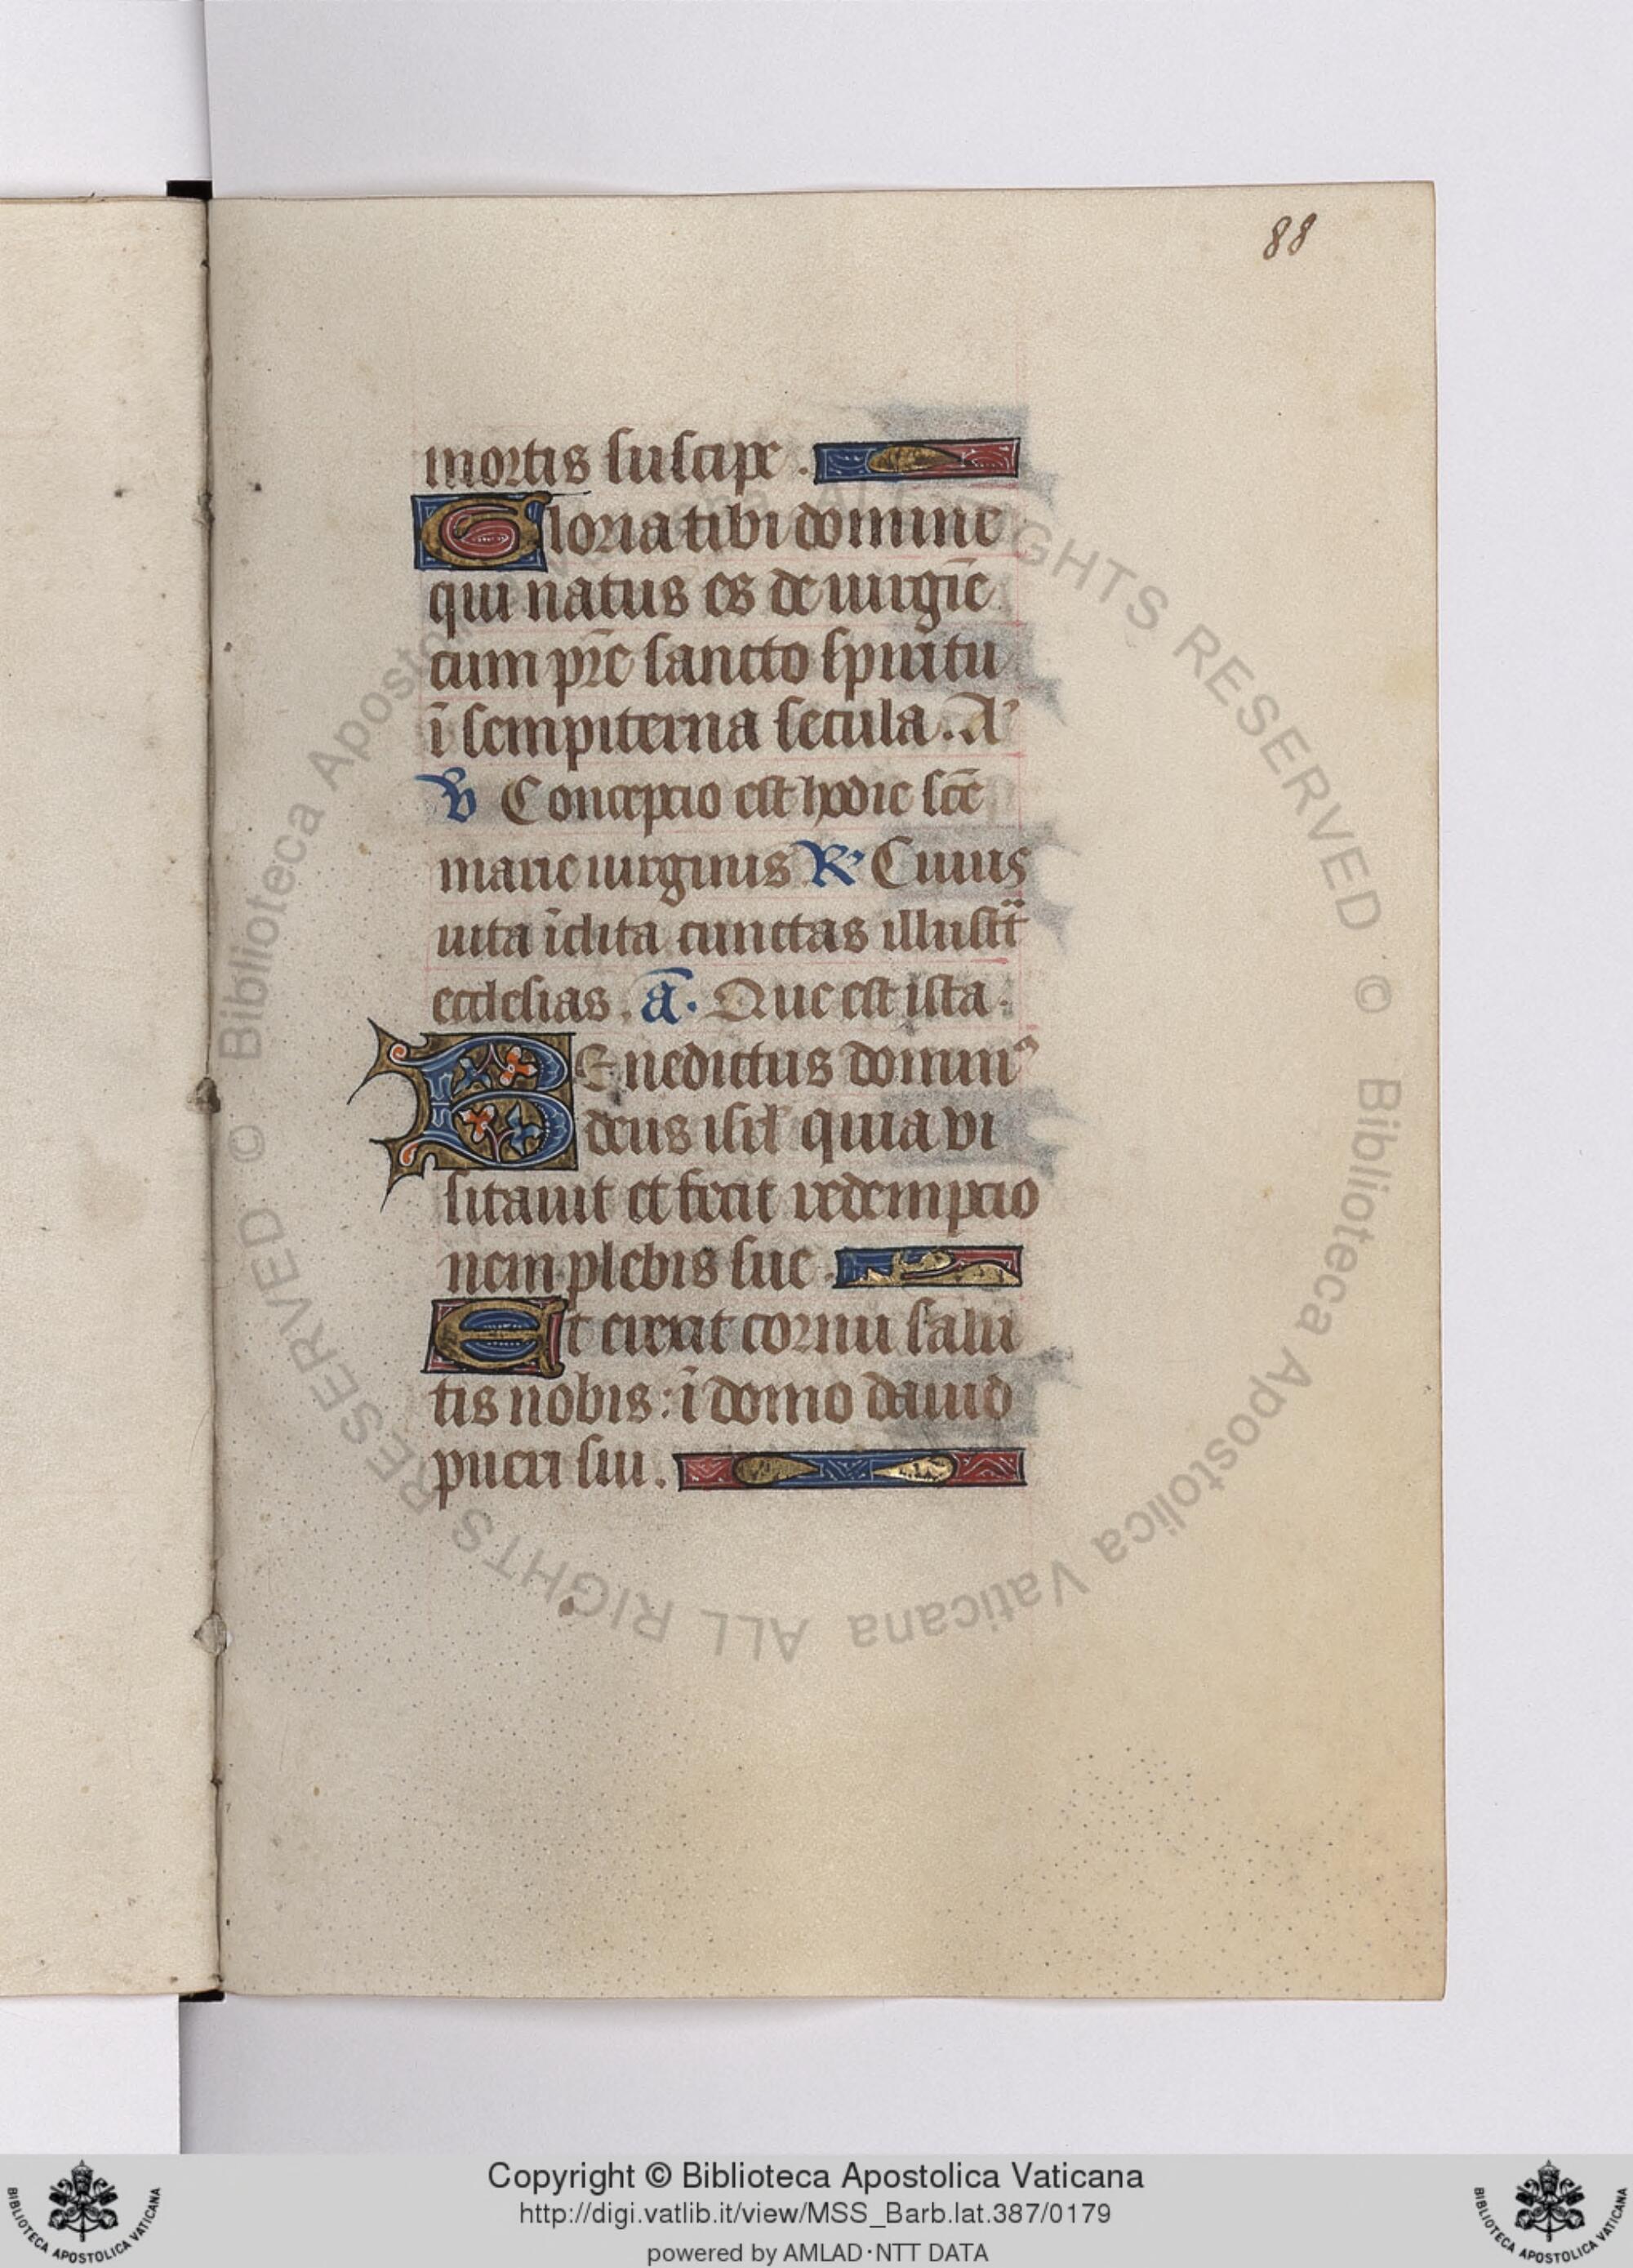 88
mortis suscipe .
Gloria tibi domine
qui natus es de uirgīe
cum pr̄e sancto spiritu
ī sempiterna secula. A᾽
℣ Conceptio est hodie sc̄e
marie uirginis ℟ Cuius
uita īclita cunctas illustᷓt
ecclesias. a̅. Que est ista.
BEnedictus domin᾽
deus isrl̄ quia vi
sitauit et fecit redemptio
nem plebis sue .
Et erexit cornu salu
tis nobis : ī domo dauid
pueri sui .
© Biblioteca Apostolica Vaticana ALL RIGHTS RESERVED
© Biblioteca Apostolica Vaticana ALL RIGHTS RESERVED
Copyright © Biblioteca Apostolica Vaticana
http://digi.vatlib.it/view/MSS_Barb.lat.387/0179
powered by AMLAD·NTT DATA
BIBLIOTECA APOSTOLICA VATICANA
BIBLIOTECA APOSTOLICA VATICANA